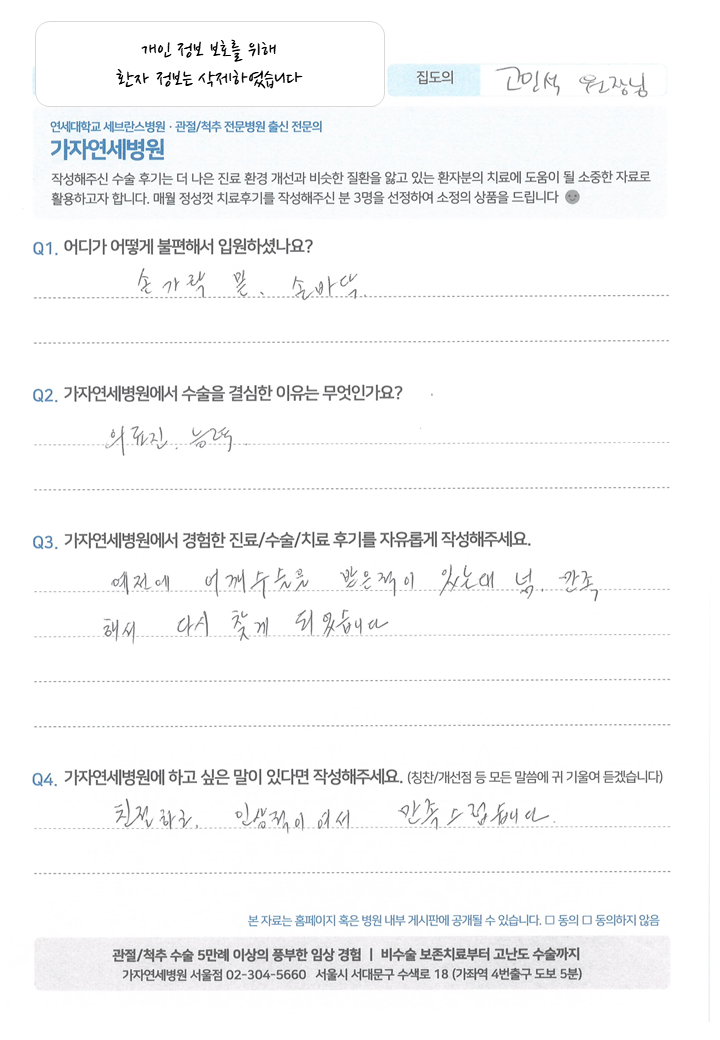 개인 정보 보호를 위해
환자 정보는 삭제하였습니다
집도의 고민석 원장님
연세대학교 세브란스병원 · 관절/척추 전문병원 출신 전문의
가자연세병원
작성해주신 수술 후기는 더 나은 진료 환경 개선과 비슷한 질환을 앓고 있는 환자분의 치료에 도움이 될 소중한 자료로
활용하고자 합니다. 매월 정성껏 치료후기를 작성해주신 분 3명을 선정하여 소정의 상품을 드립니다
Q1. 어디가 어떻게 불편해서 입원하셨나요?
손가락 밑. 손바닥.
Q2. 가자연세병원에서 수술을 결심한 이유는 무엇인가요?
의료진. 능력.
Q3. 가자연세병원에서 경험한 진료/수술/치료 후기를 자유롭게 작성해주세요.
예전에 어깨수술을 받은적이 있는대 넘. 만족
해서 다시 찾게 되었습니다
Q4. 가자연세병원에 하고 싶은 말이 있다면 작성해주세요. (칭찬/개선점 등 모든 말씀에 귀 기울여 듣겠습니다)
친절하고. 인상적이여서 만족스럽습니다.
본 자료는 홈페이지 혹은 병원 내부 게시판에 공개될 수 있습니다. □ 동의 □ 동의하지 않음
관절/척추 수술 5만례 이상의 풍부한 임상 경험 | 비수술 보존치료부터 고난도 수술까지
가자연세병원 서울점 02-304-5660 서울시 서대문구 수색로 18 (가좌역 4번출구 도보 5분)